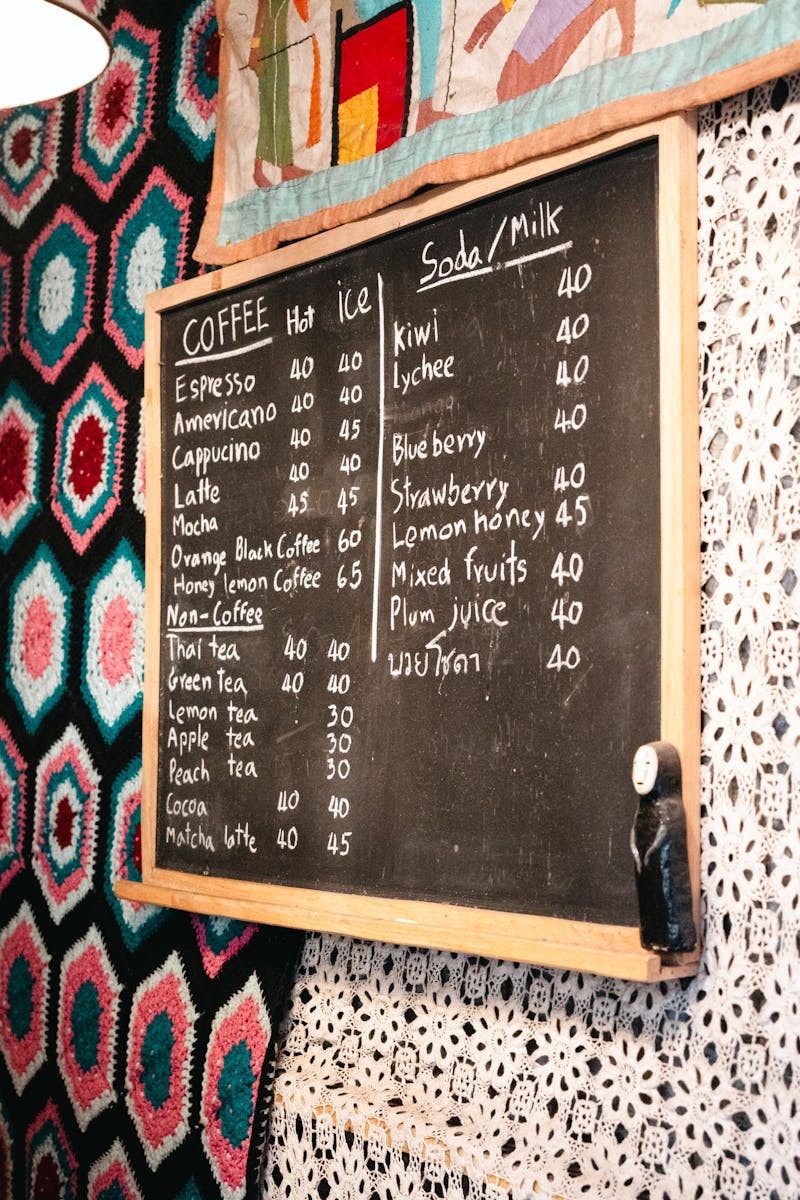 COFFEE Hot ICE
Espresso 40 40
Americano 40 40
Cappucino 40 45
Latte 40 40
Mocha 45 45
Orange Black Coffee 60
Honey lemon Coffee 65
Non-Coffee
Thai tea 40 40
Green tea 40 40
Lemon tea 30
Apple tea 30
Peach tea 30
Cocoa 40 40
Matcha latte 40 45
Soda/Milk
Kiwi 40
Lychee 40
40
Blueberry 40
Strawberry 40
Lemon honey 45
Mixed fruits 40
Plum juice 40
บวยโซดา 40